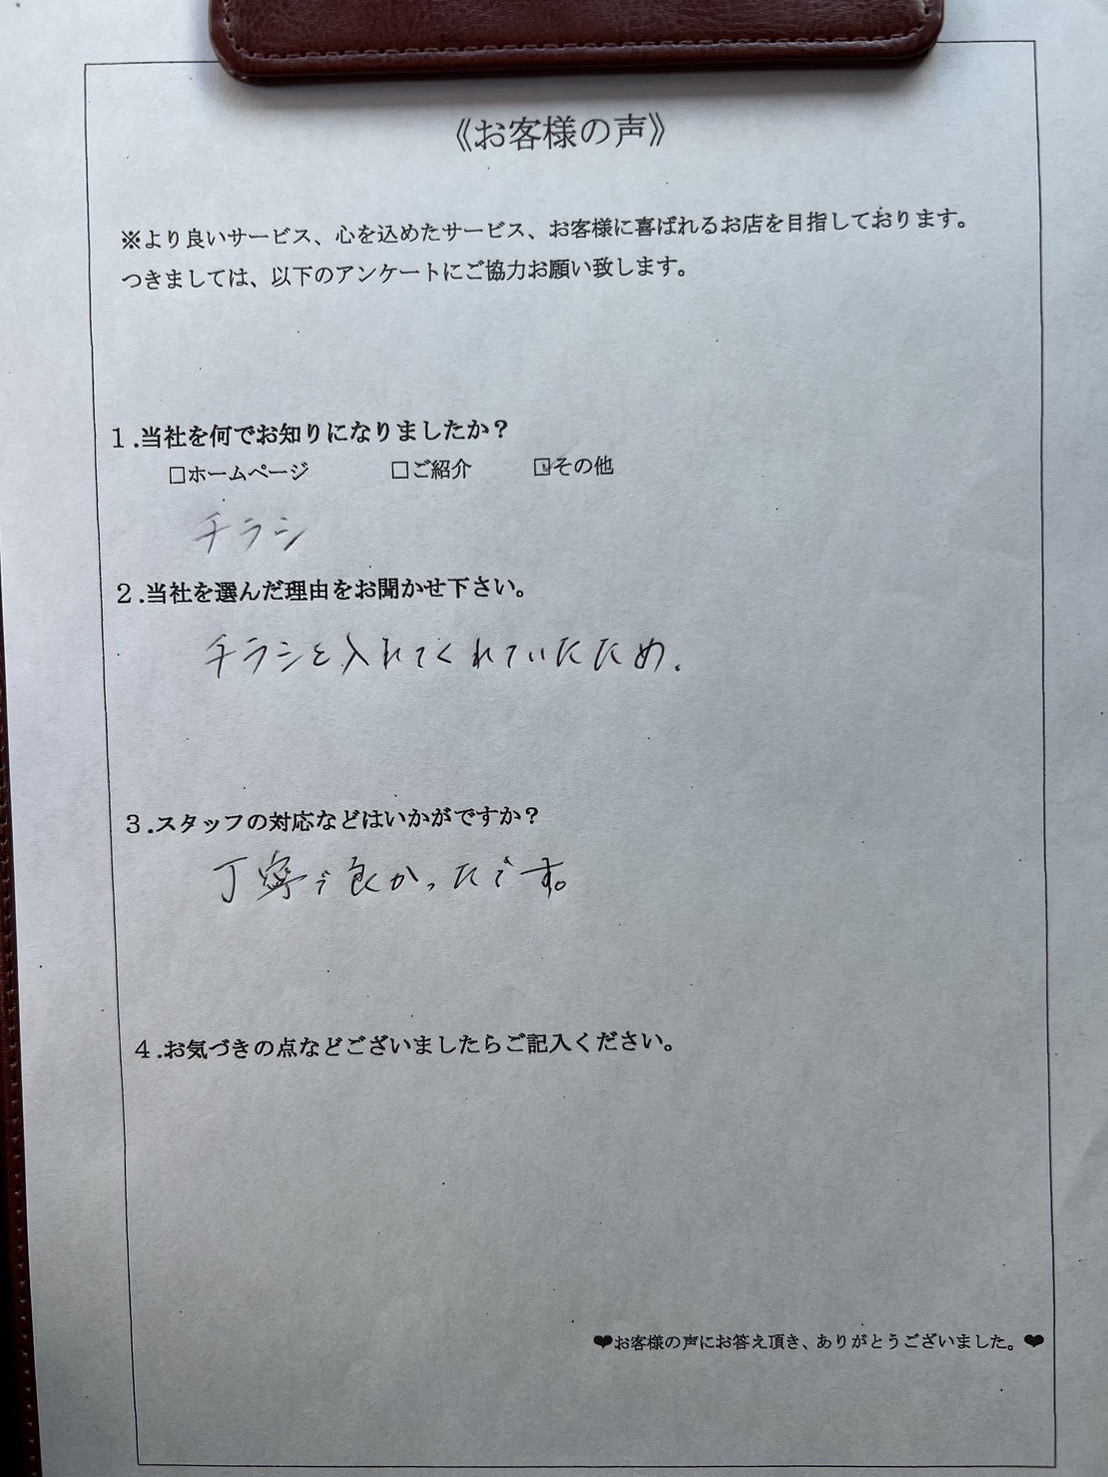 《お客様の声》
※より良いサービス、心を込めたサービス、お客様に喜ばれるお店を目指しております。
つきましては、以下のアンケートにご協力お願い致します。
1.当社を何でお知りになりましたか？
□ホームページ □ご紹介 ☑その他
チラシ
2.当社を選んだ理由をお聞かせ下さい。
チラシを入れてくれていたため.
3.スタッフの対応などはいかがですか？
丁寧で良かったです。
4.お気づきの点などございましたらご記入ください。
❤お客様の声にお答え頂き、ありがとうございました。❤